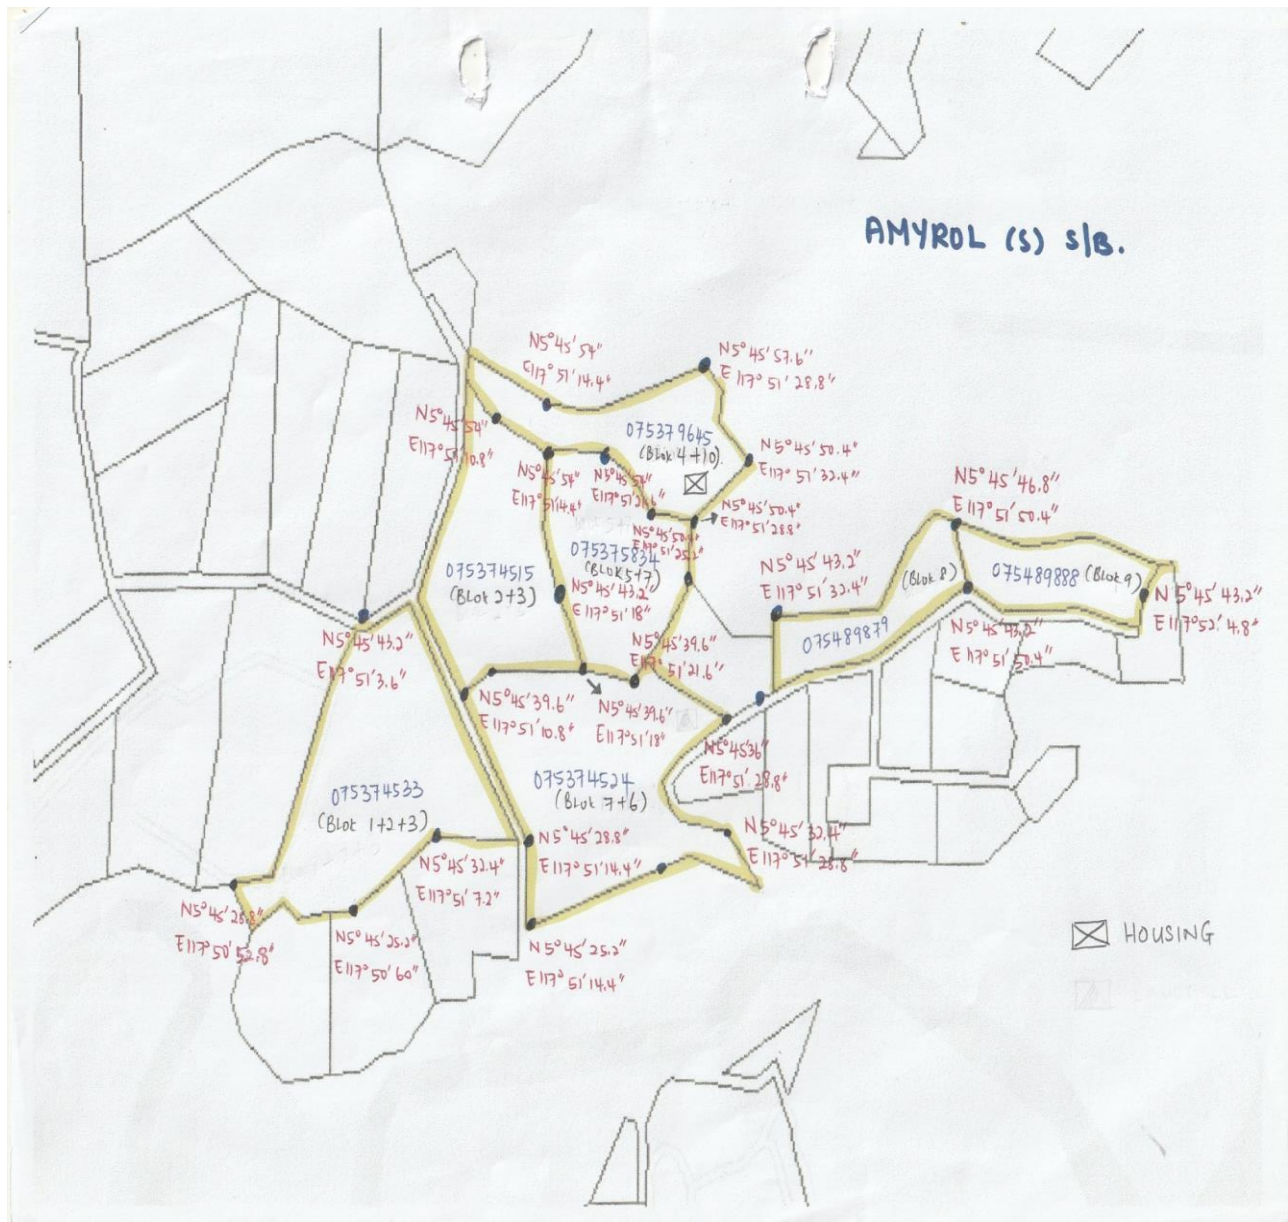 AMYROL (S) S/B.
N5°45'54"
E117°51'14.4"
N5°45'57.6"
E117°51'28.8"
N5°45'54"
E117°51'10.8"
075379645
(Blok 4+10)
N5°45'50.4"
E117°51'32.4"
N5°45'54"
E117°51'14.4"
N5°45'54"
E117°51'21.6"
N5°45'50.4"
E117°51'28.8"
N5°45'50.4"
E117°51'25.2"
N5°45'46.8"
E117°51'50.4"
075374515
(Blok 2+3)
075375834
(Blok 5+7)
N5°45'43.2"
E117°51'18"
N5°45'43.2"
E117°51'32.4"
(Blok 8)
075489888 (Blok 9)
N5°45'43.2"
E117°52'4.8"
075489879
N5°45'43.2"
E117°51'50.4"
N5°45'43.2"
E117°51'3.6"
N5°45'39.6"
E117°51'21.6"
N5°45'39.6"
E117°51'10.8"
N5°45'39.6"
E117°51'18"
N5°45'36"
E117°51'28.8"
075374533
(Blok 1+2+3)
075374524
(Blok 7+6)
N5°45'32.4"
E117°51'28.8"
N5°45'28.8"
E117°51'14.4"
N5°45'32.4"
E117°51'7.2"
N5°45'28.8"
E117°50'52.8"
N5°45'25.2"
E117°50'60"
N5°45'25.2"
E117°51'14.4"
HOUSING